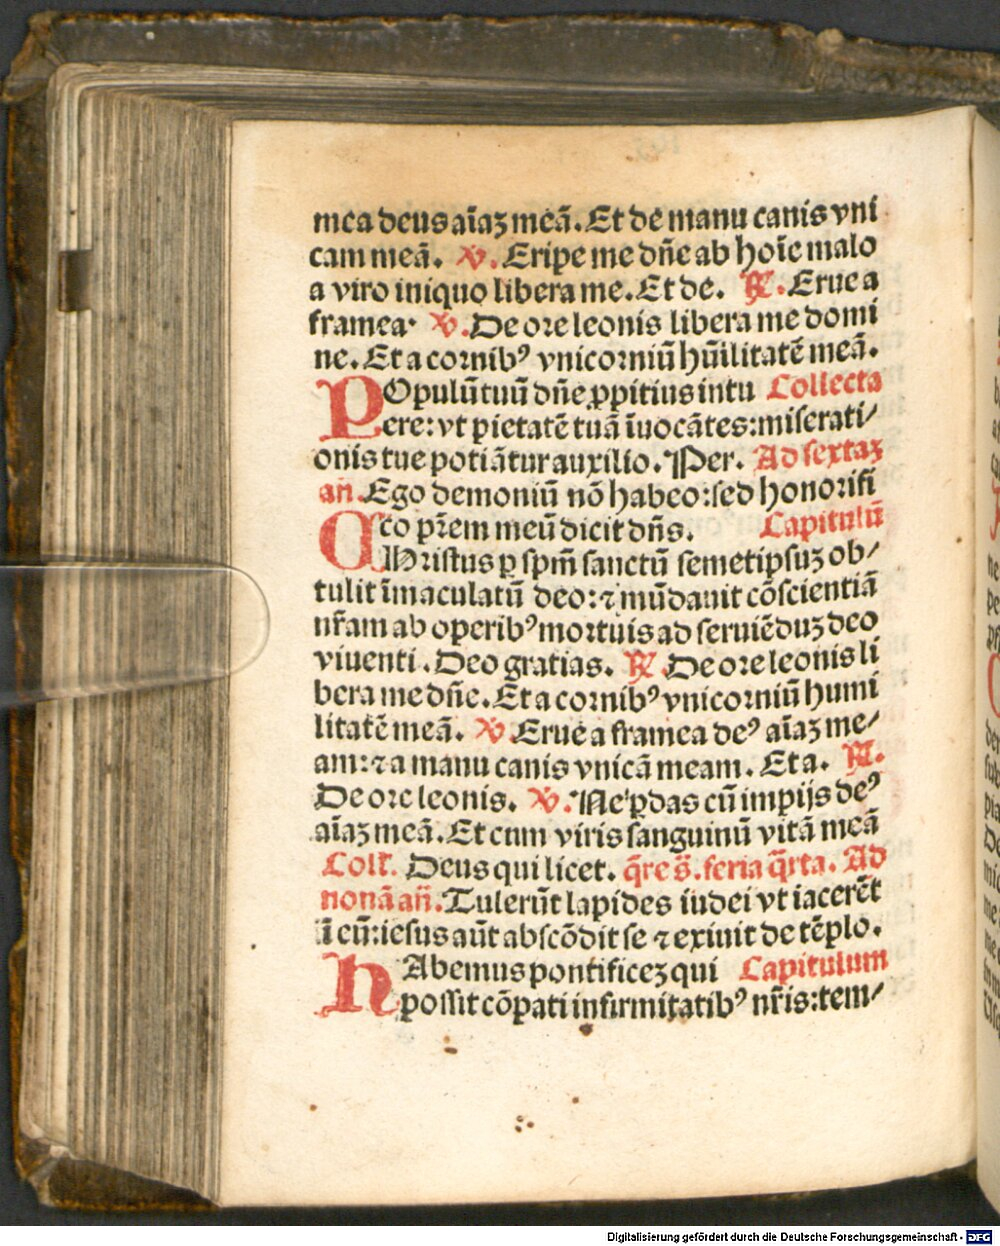 mea deus aīaꝫ meā. Et de manu canis vni
cam meā. ℣. Eripe me dn̄e ab hoīe malo
a viro iniquo libera me. Et de. ℟. Erue a
framea· ℣. De ore leonis libera me domi
ne. Et a cornibꝰ vnicorniū hūilitatē meā.
POpulū tuū dn̄e ꝓpitius intu Collecta
ere: vt pietatē tuā īuocātes: miserati/
onis tue potiātur auxilio. Per. Ad sextaꝫ
an̄. Ego demoniū nō habeo: sed honorifi
co pr̄em meū dicit dn̄s. Capitulū
CHristus ꝑ spm̄ sanctū semetipsuꝫ ob/
tulit īmaculatū deo: ⁊ mūdauit cōscientiā
nr̄am ab operibꝰ mortuis ad seruiēduꝫ deo
viuenti. Deo gratias. ℟. De ore leonis li
bera me dn̄e. Et a cornibꝰ vnicorniū humi
litatē meā. ℣. Erue a framea deꝰ aīaꝫ me/
am: ⁊ a manu canis vnicā meam. Et a. ℟.
De ore leonis. ℣. Ne ꝑdas cū impijs deꝰ
aīaꝫ meā. Et cum viris sanguinū vitā meā
Coll'. Deus qui licet. q̄re s̄. feria q̄rta. Ad
nonā an̄. Tulerūt lapides iudei vt iacerēt
ī eū: iesus aūt abscōdit se ⁊ exiuit de tēplo.
HAbemus pontificeꝫ qui Capitulum
possit cōpati infirmitatibꝰ nr̄is: tem/
Digitalisierung gefördert durch die Deutsche Forschungsgemeinschaft - DFG